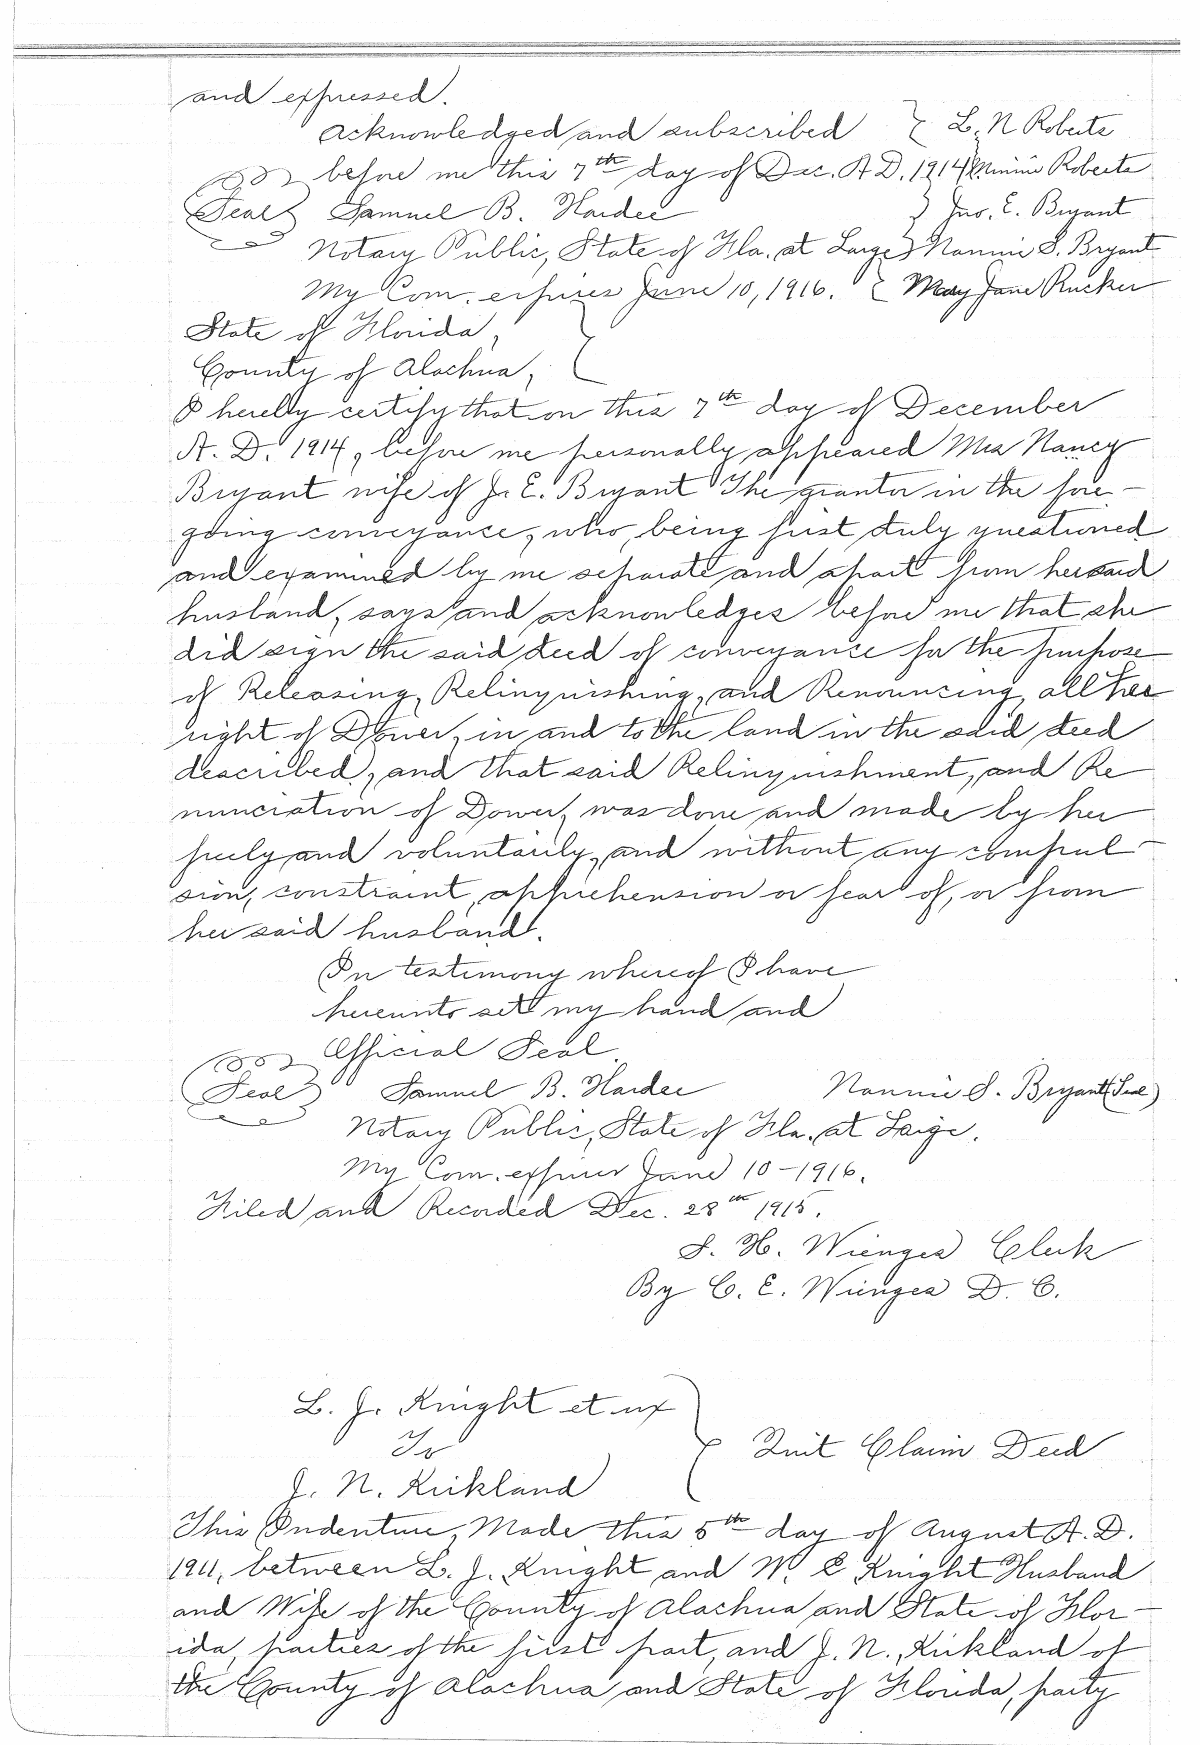 and expressed.
Acknowledged and subscribed } L. N Roberts
before me this 7th day of Dec. A D. 1914 } Minnie Roberts
Seal Samuel B. Hardee } Jno. E. Bryant
Notary Public, State of Fla. at Large } Nannie S. Bryant
My Com. expires June 10, 1916. } Mary Jane Rucker
State of Florida,
County of Alachua,
I hereby certify that on this 7th day of December
A. D. 1914, before me personally appeared Mrs Nancy
Bryant wife of J. E. Bryant The grantor in the fore-
going conveyance, who, being first duly questioned
and examined by me separate and apart from her said
husband, says and acknowledges before me that she
did sign the said deed of conveyance for the purpose
of Releasing, Relinquishing, and Renouncing, all her
right of Dower, in and to the land in the said deed
described, and that said Relinquishment, and Re
nunciation of Dower, was done and made by her
freely and voluntarily, and without any compul-
sion, constraint, apprehension or fear of, or from
her said husband.
In testimony whereof I have
hereunto set my hand and
Official Seal.
Seal Samuel B. Hardee Nannie S. Bryant (Seal)
Notary Public, State of Fla. at Large.
My Com. expires June 10-1916.
Filed and Recorded Dec. 28th 1915.
S. H. Wienges Clerk
By C. E. Wienges D. C.
L. J. Knight et ux
To } Quit Claim Deed
J. N. Kirkland
This Indenture, Made this 5th day of August A. D.
1911, between L. J. Knight and W. E Knight Husband
and Wife of the County of Alachua and State of Flor-
ida, parties of the first part, and J. N. Kirkland of
the County of Alachua and State of Florida, party